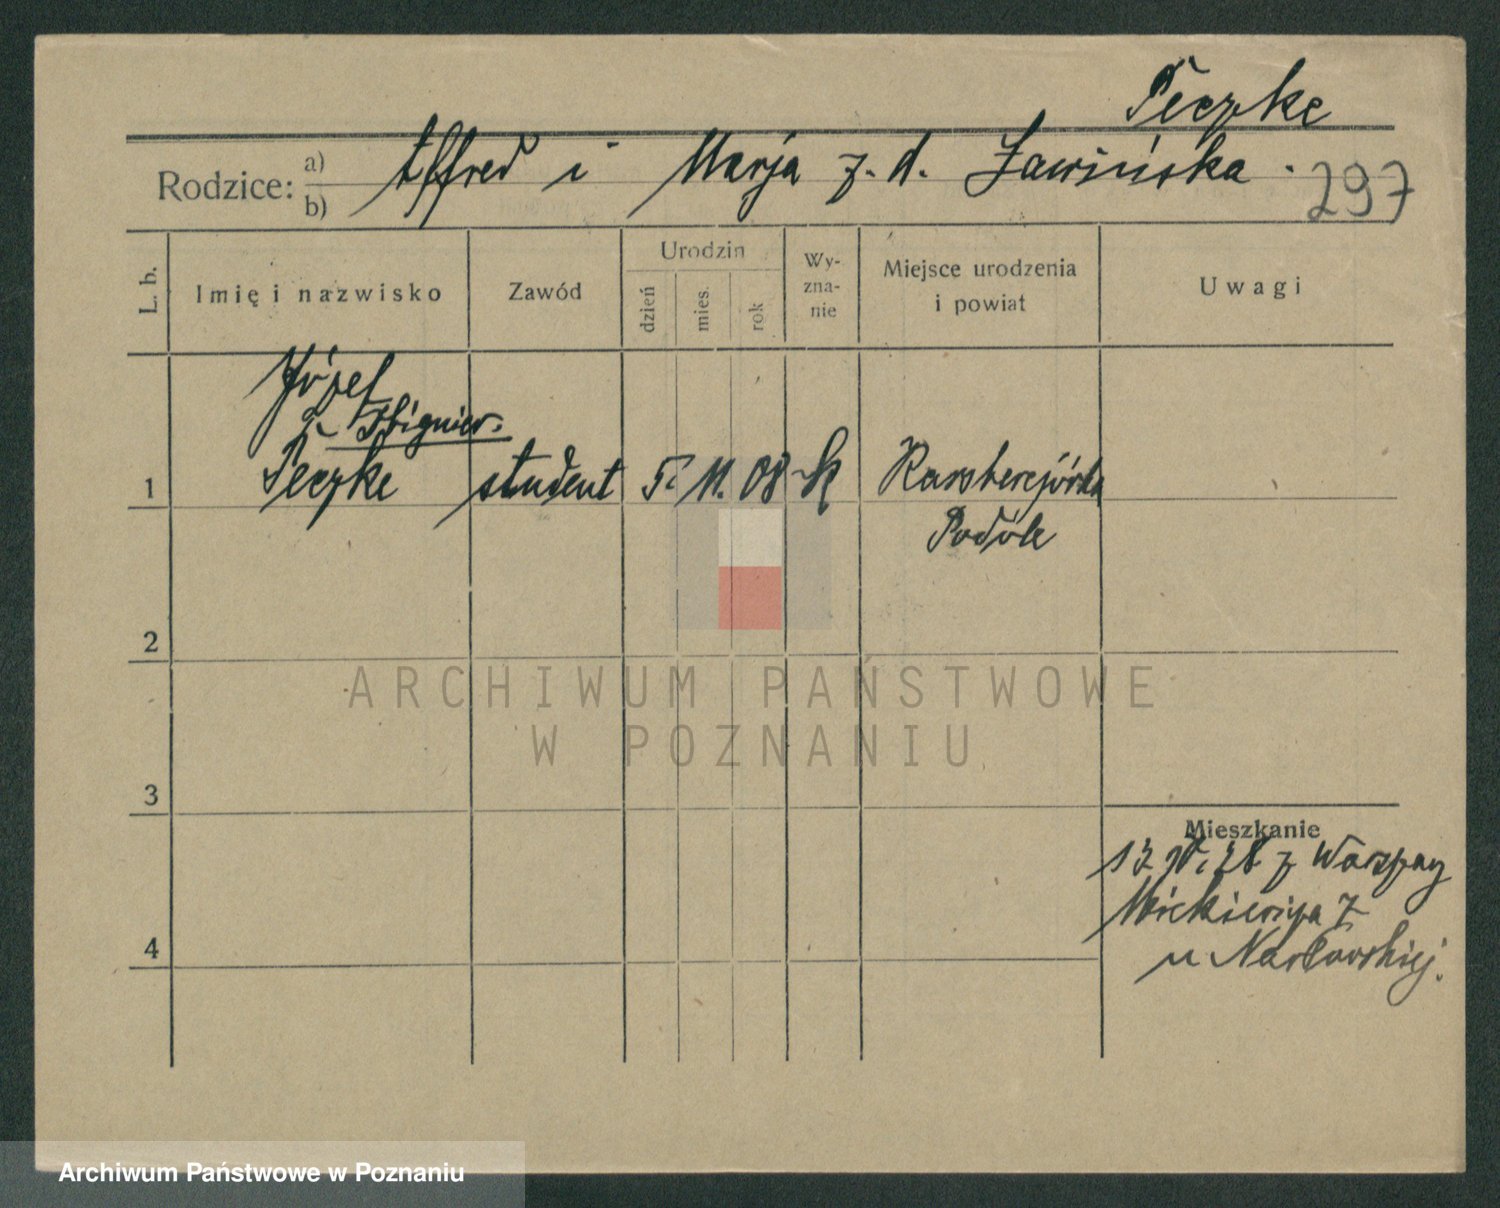 Peczke
Rodzice: a) b) Alfred i Marja z. d. Zawsińska.
297
L. b.
Imię i nazwisko
Zawód
Urodzin
dzień
mies.
rok
Wy-
zna-
nie
Miejsce urodzenia
i powiat
Uwagi
Józef
Zbigniew.
1 Peczke student 5. 11. 08 k
Podole
2
3
4
Mieszkanie
z Warszawy
Mickiewicza 7
u Narkowskiej.
ARCHIWUM PAŃSTWOWE
W POZNANIU
Archiwum Państwowe w Poznaniu